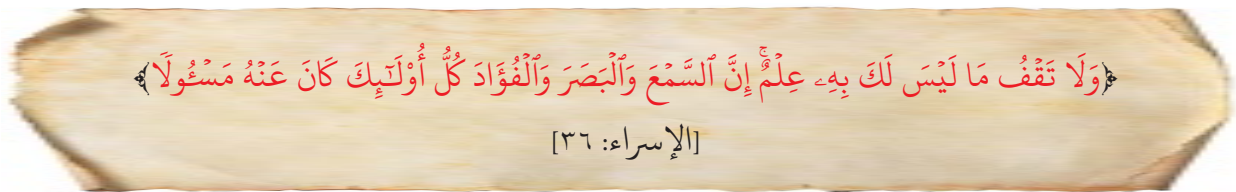 ﴿وَلَا تَقۡفُ مَا لَيۡسَ لَكَ بِهِۦ عِلۡمٌۚ إِنَّ ٱلسَّمۡعَ وَٱلۡبَصَرَ وَٱلۡفُؤَادَ كُلُّ أُوْلَٰٓئِكَ كَانَ عَنۡهُ مَسۡـُٔولٗا﴾
[الإسراء: ٣٦]